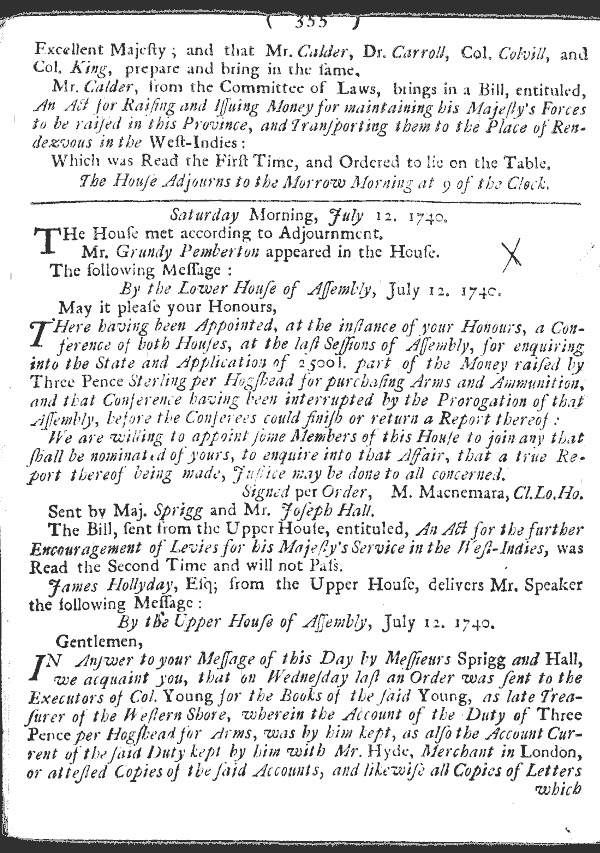 ( 355 )
Excellent Majeſty ; and that Mr. Calder, Dr. Carroll, Col. Colvill, and
Col. King, prepare and bring in the ſame.
Mr. Calder, from the Committee of Laws, brings in a Bill, entituled,
An Act for Raiſing and Iſſuing Money for maintaining his Majeſty's Forces
to be raiſed in this Province, and Tranſporting them to the Place of Ren-
dezvous in the Weſt-Indies :
Which was Read the Firſt Time, and Ordered to lie on the Table.
The Houſe Adjourns to the Morrow Morning at 9 of the Clock.
Saturday Morning, July 12. 1740.
THe Houſe met according to Adjournment.
Mr. Grundy Pemberton appeared in the Houſe.
The following Meſſage :
By the Lower Houſe of Aſſembly, July 12. 1740.
May it pleaſe your Honours,
THere having been Appointed, at the inſtance of your Honours, a Con-
ference of both Houſes, at the laſt Seſſions of Aſſembly, for enquiring
into the State and Application of 2500l. part of the Money raiſed by
Three Pence Sterling per Hogſhead for purchaſing Arms and Ammunition,
and that Conference having been interrupted by the Prorogation of that
Aſſembly, before the Conferees could finiſh or return a Report thereof :
We are willing to appoint ſome Members of this Houſe to join any that
ſhall be nominated of yours, to enquire into that Affair, that a true Re-
port thereof being made, Juſtice may be done to all concerned.
Signed per Order, M. Macnemara, Cl. Lo. Ho.
Sent by Maj. Sprigg and Mr. Joſeph Hall.
The Bill, ſent from the Upper Houſe, entituled, An Act for the further
Encouragement of Levies for his Majeſty's Service in the Weſt-Indies, was
Read the Second Time and will not Paſs.
James Hollyday, Eſq; from the Upper Houſe, delivers Mr. Speaker
the following Meſſage :
By the Upper Houſe of Aſſembly, July 12. 1740.
Gentlemen,
IN Anſwer to your Meſſage of this Day by Meſſieurs Sprigg and Hall,
we acquaint you, that on Wedneſday laſt an Order was ſent to the
Executors of Col. Young for the Books of the ſaid Young, as late Trea-
ſurer of the Weſtern Shore, wherein the Account of the Duty of Three
Pence per Hogſhead for Arms, was by him kept, as alſo the Account Cur-
rent of the ſaid Duty kept by him with Mr. Hyde, Merchant in London,
or atteſted Copies of the ſaid Accounts, and likewiſe all Copies of Letters
which